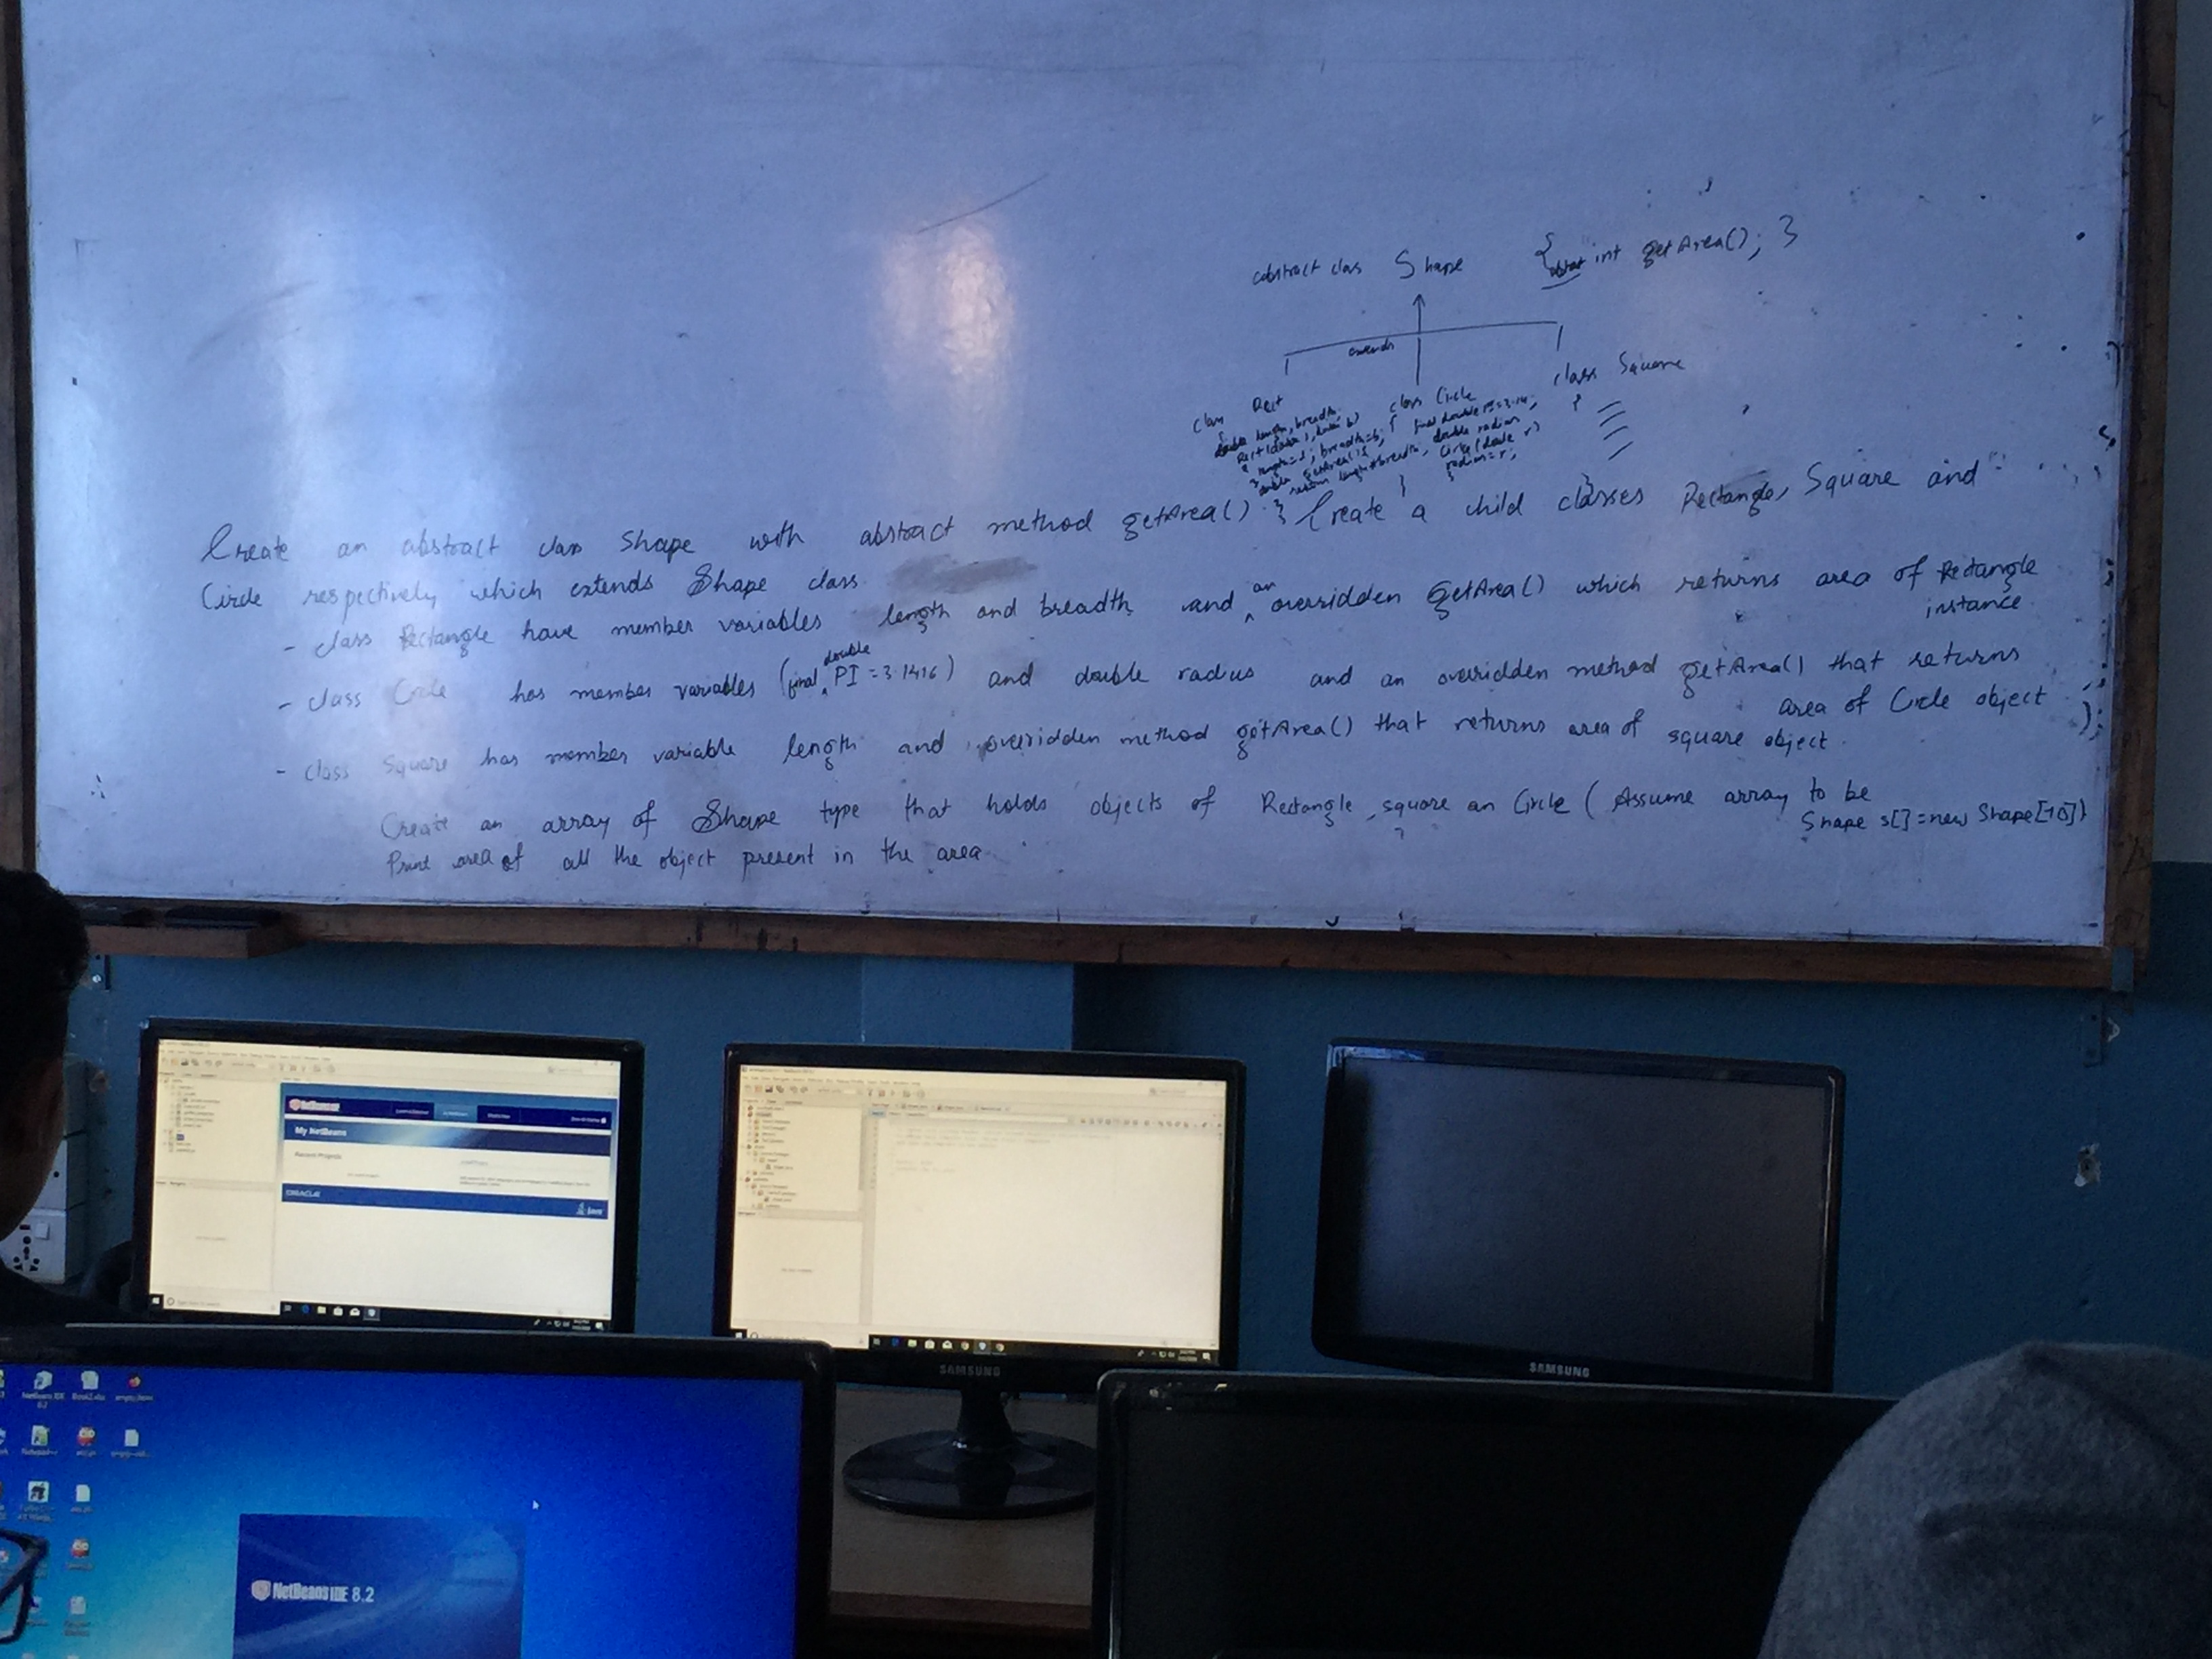 abstract class Shape { abstract int getArea(); }
extends
class Rect
{
double length, breadth
Rect(double l, double b)
{ length=l; breadth=b;
}
double getArea(){
return length*breadth;
}
class Circle
{ final double PI=3.14;
double radius
Circle(double r)
{ radius=r;
}
class Square
{
}
Create an abstract class Shape with abstract method getArea(). Create a child classes Rectangle, Square and
Circle respectively which extends Shape class
- class Rectangle have member variables length and breadth and an overridden getArea() which returns area of Rectangle
instance
- class Circle has member variables (final double PI = 3.1416) and double radius and an overidden method getArea() that returns
area of Circle object
- class Square has member variable length and overidden method getArea() that returns area of square object.
Create an array of Shape type that holds objects of Rectangle, square an Circle (Assume array to be
Shape s[] = new Shape[10])
Print area of all the object present in the area
NetBeans
My NetBeans
Recent Projects
ORACLE
Java
SAMSUNG
SAMSUNG
NetBeans IDE
8.2
NetBeans IDE 8.2